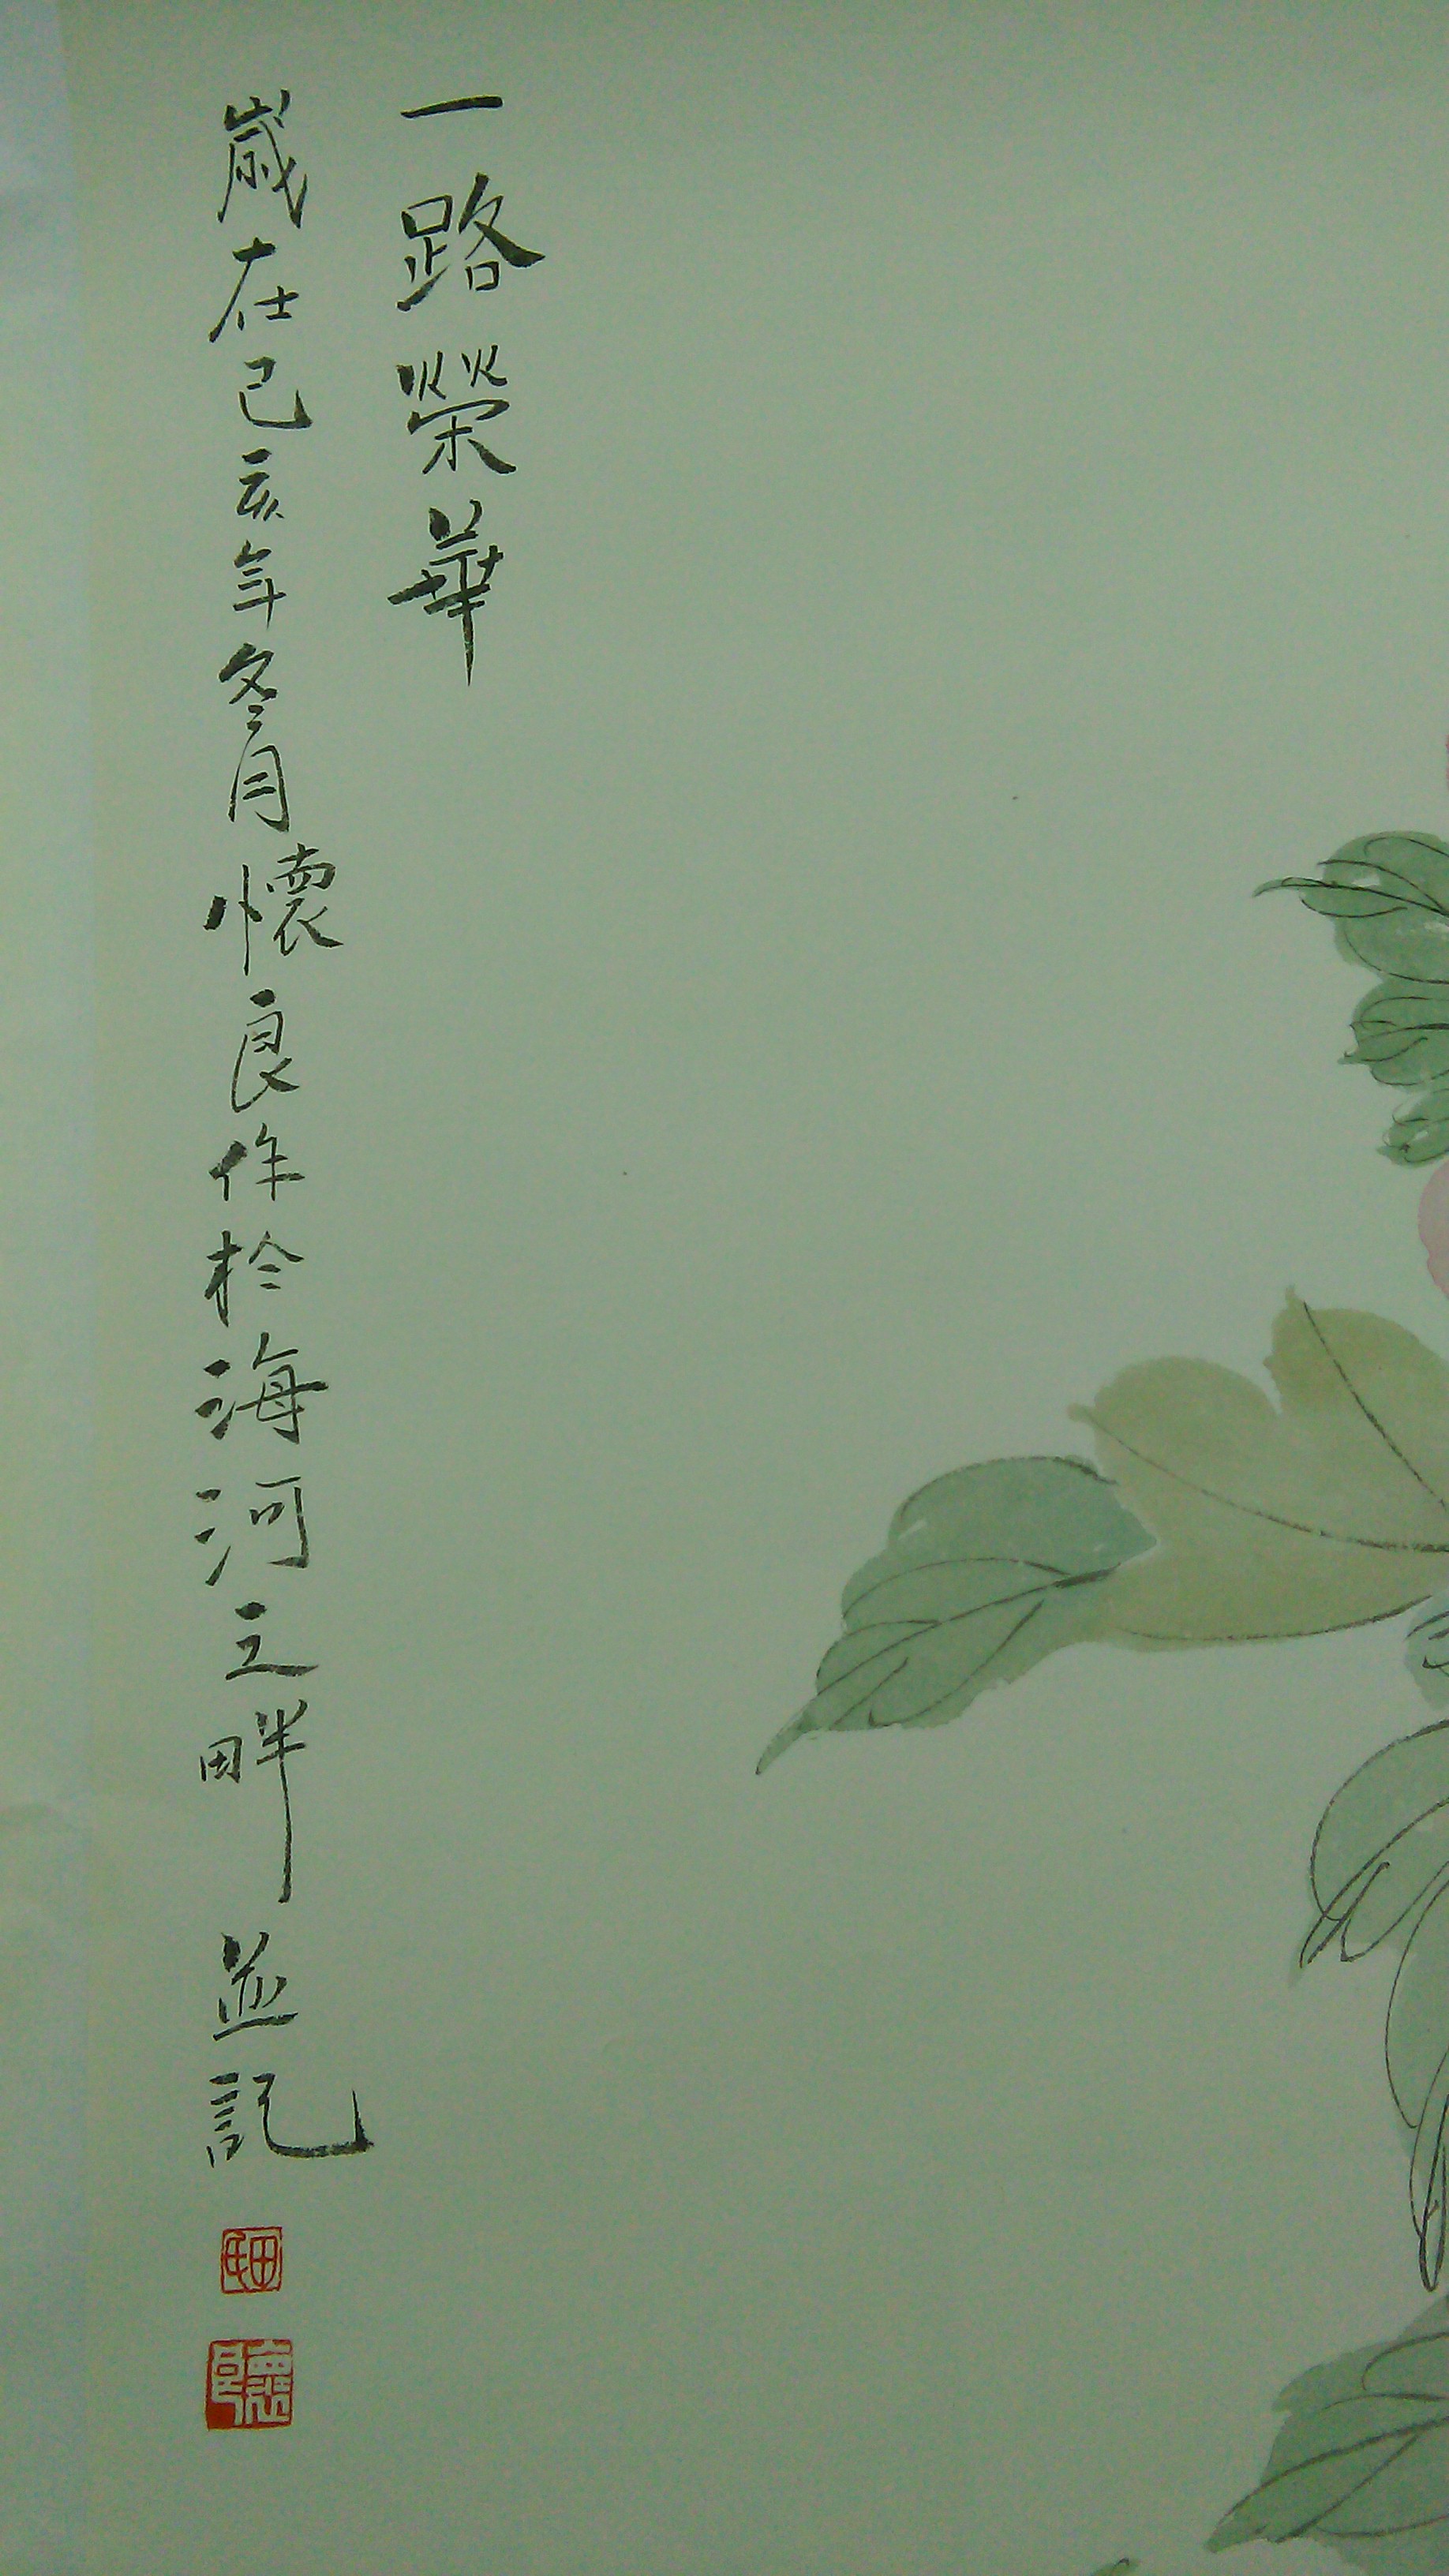 一路榮華
歲在己亥年冬月懷良作於海河之畔並記